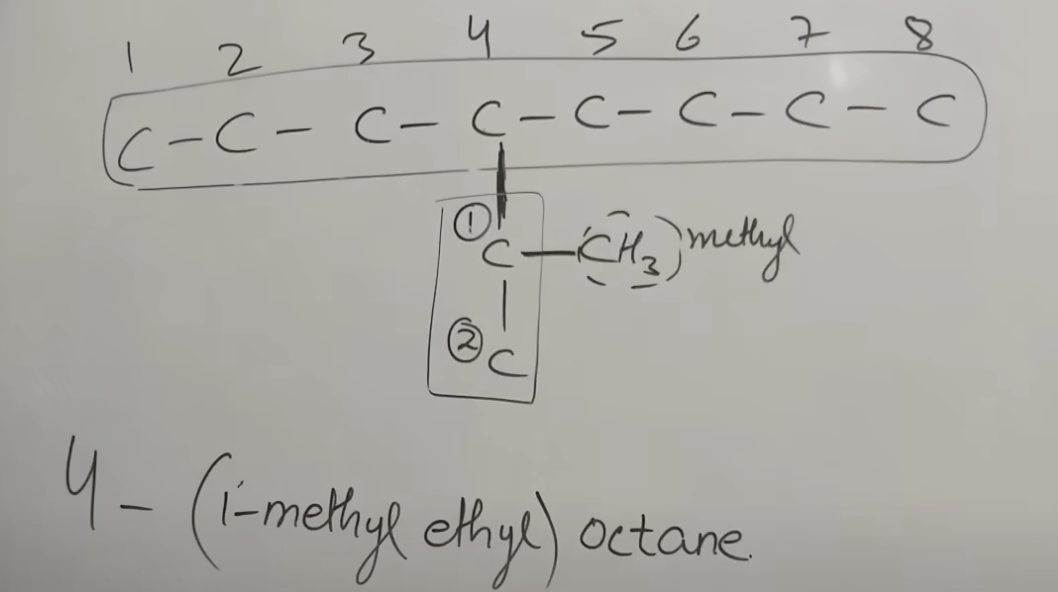 1 2 3 4 5 6 7 8
C - C - C - C - C - C - C - C
① C - CH₃ methyl
② C
4 - (1-methyl ethyl) octane.